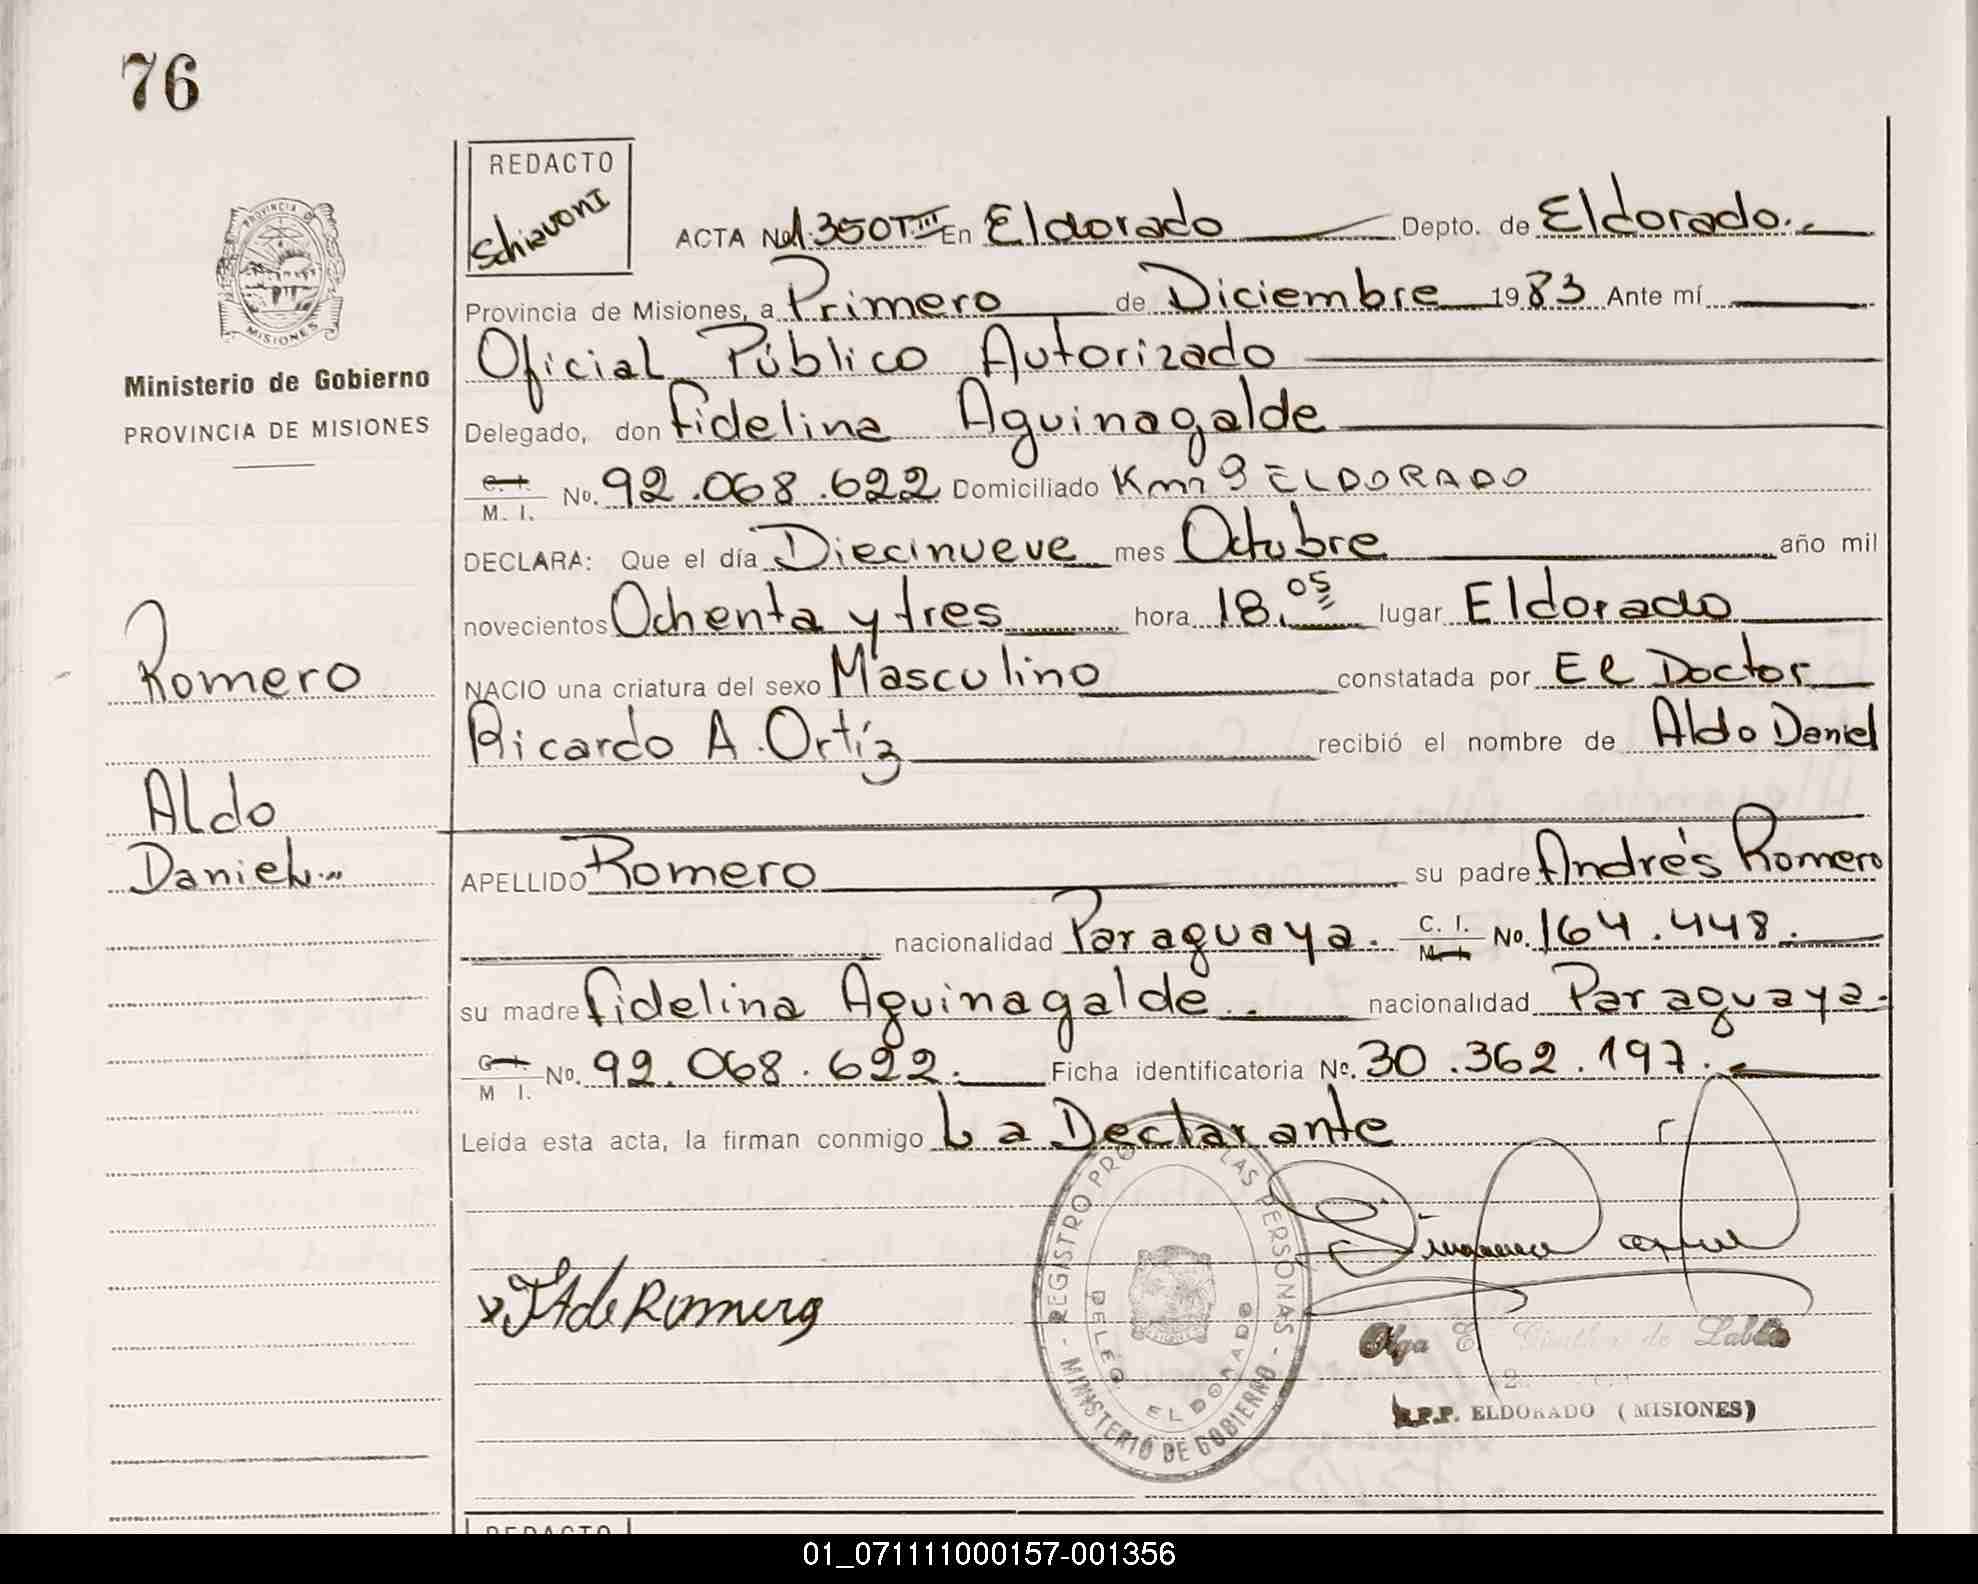 76
REDACTO
Schiavoni
ACTA No 1.350 T III En Eldorado Depto. de Eldorado.
Provincia de Misiones, a Primero de Diciembre 1983 Ante mí
Oficial Público Autorizado
Delegado, don Fidelina Aguinagalde
C. I.
M. I. No. 92.068.622 Domiciliado Km 9 ELDORADO
DECLARA: Que el día Diecinueve mes Octubre año mil
novecientos Ochenta y tres hora 18.05 lugar Eldorado
NACIO una criatura del sexo Masculino constatada por El Doctor
Ricardo A. Ortíz recibió el nombre de Aldo Daniel
APELLIDO Romero su padre Andrés Romero
nacionalidad Paraguaya. C. I.
M. I. No. 164.448.
su madre Fidelina Aguinagalde. nacionalidad Paraguaya.
C. I.
M I. No. 92.068.622. Ficha identificatoria No. 30.362.197.
Leída esta acta, la firman conmigo La Declarante
PROVINCIA DE
MISIONES
Ministerio de Gobierno
PROVINCIA DE MISIONES
Romero
Aldo
Daniel
x F A de Romero
REGISTRO PRO LAS PERSONAS
DELEG. ELDORADO
- MINISTERIO DE GOBIERNO -
Olga E. de
R.P.P. ELDORADO (MISIONES)
REDACTO
01_071111000157-001356